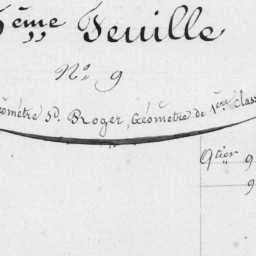 5ème Feuille
N° 9
Géomètre Sr. Roger, Géomètre de 1ère Class
Qtier 9
9